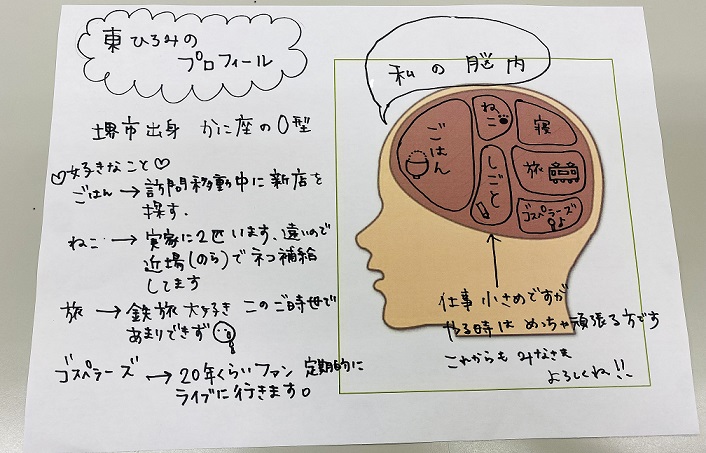 東ひろみの
プロフィール
堺市出身 かに座のO型
♡好きなこと♡
ごはん→訪問移動中に新店を
探す.
ねこ→実家に2匹います、遠いので
近場(のら)でネコ補給
してます
旅→鉄旅大好き このご時世で
あまりできず
ゴスペラーズ→20年くらいファン 定期的に
ライブに行きます。
私の脳内
ごはん
ねこ
寝
しごと
旅
ゴスペラーズ
仕事小さめですが
やる時はめっちゃ頑張る方です
これからもみなさま
よろしくね!!